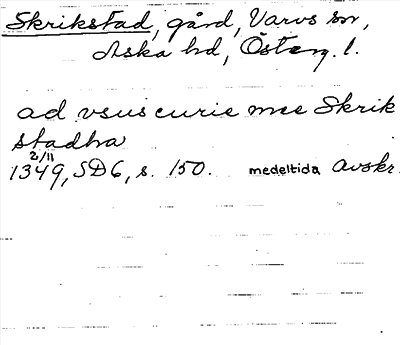 Skrikstad, gård, Varvs sn,
Aska hd, Österg. l.
ad vsus curie mee Skrik
stadha
2/11
1349, SD6, s. 150. medeltida Avskr.